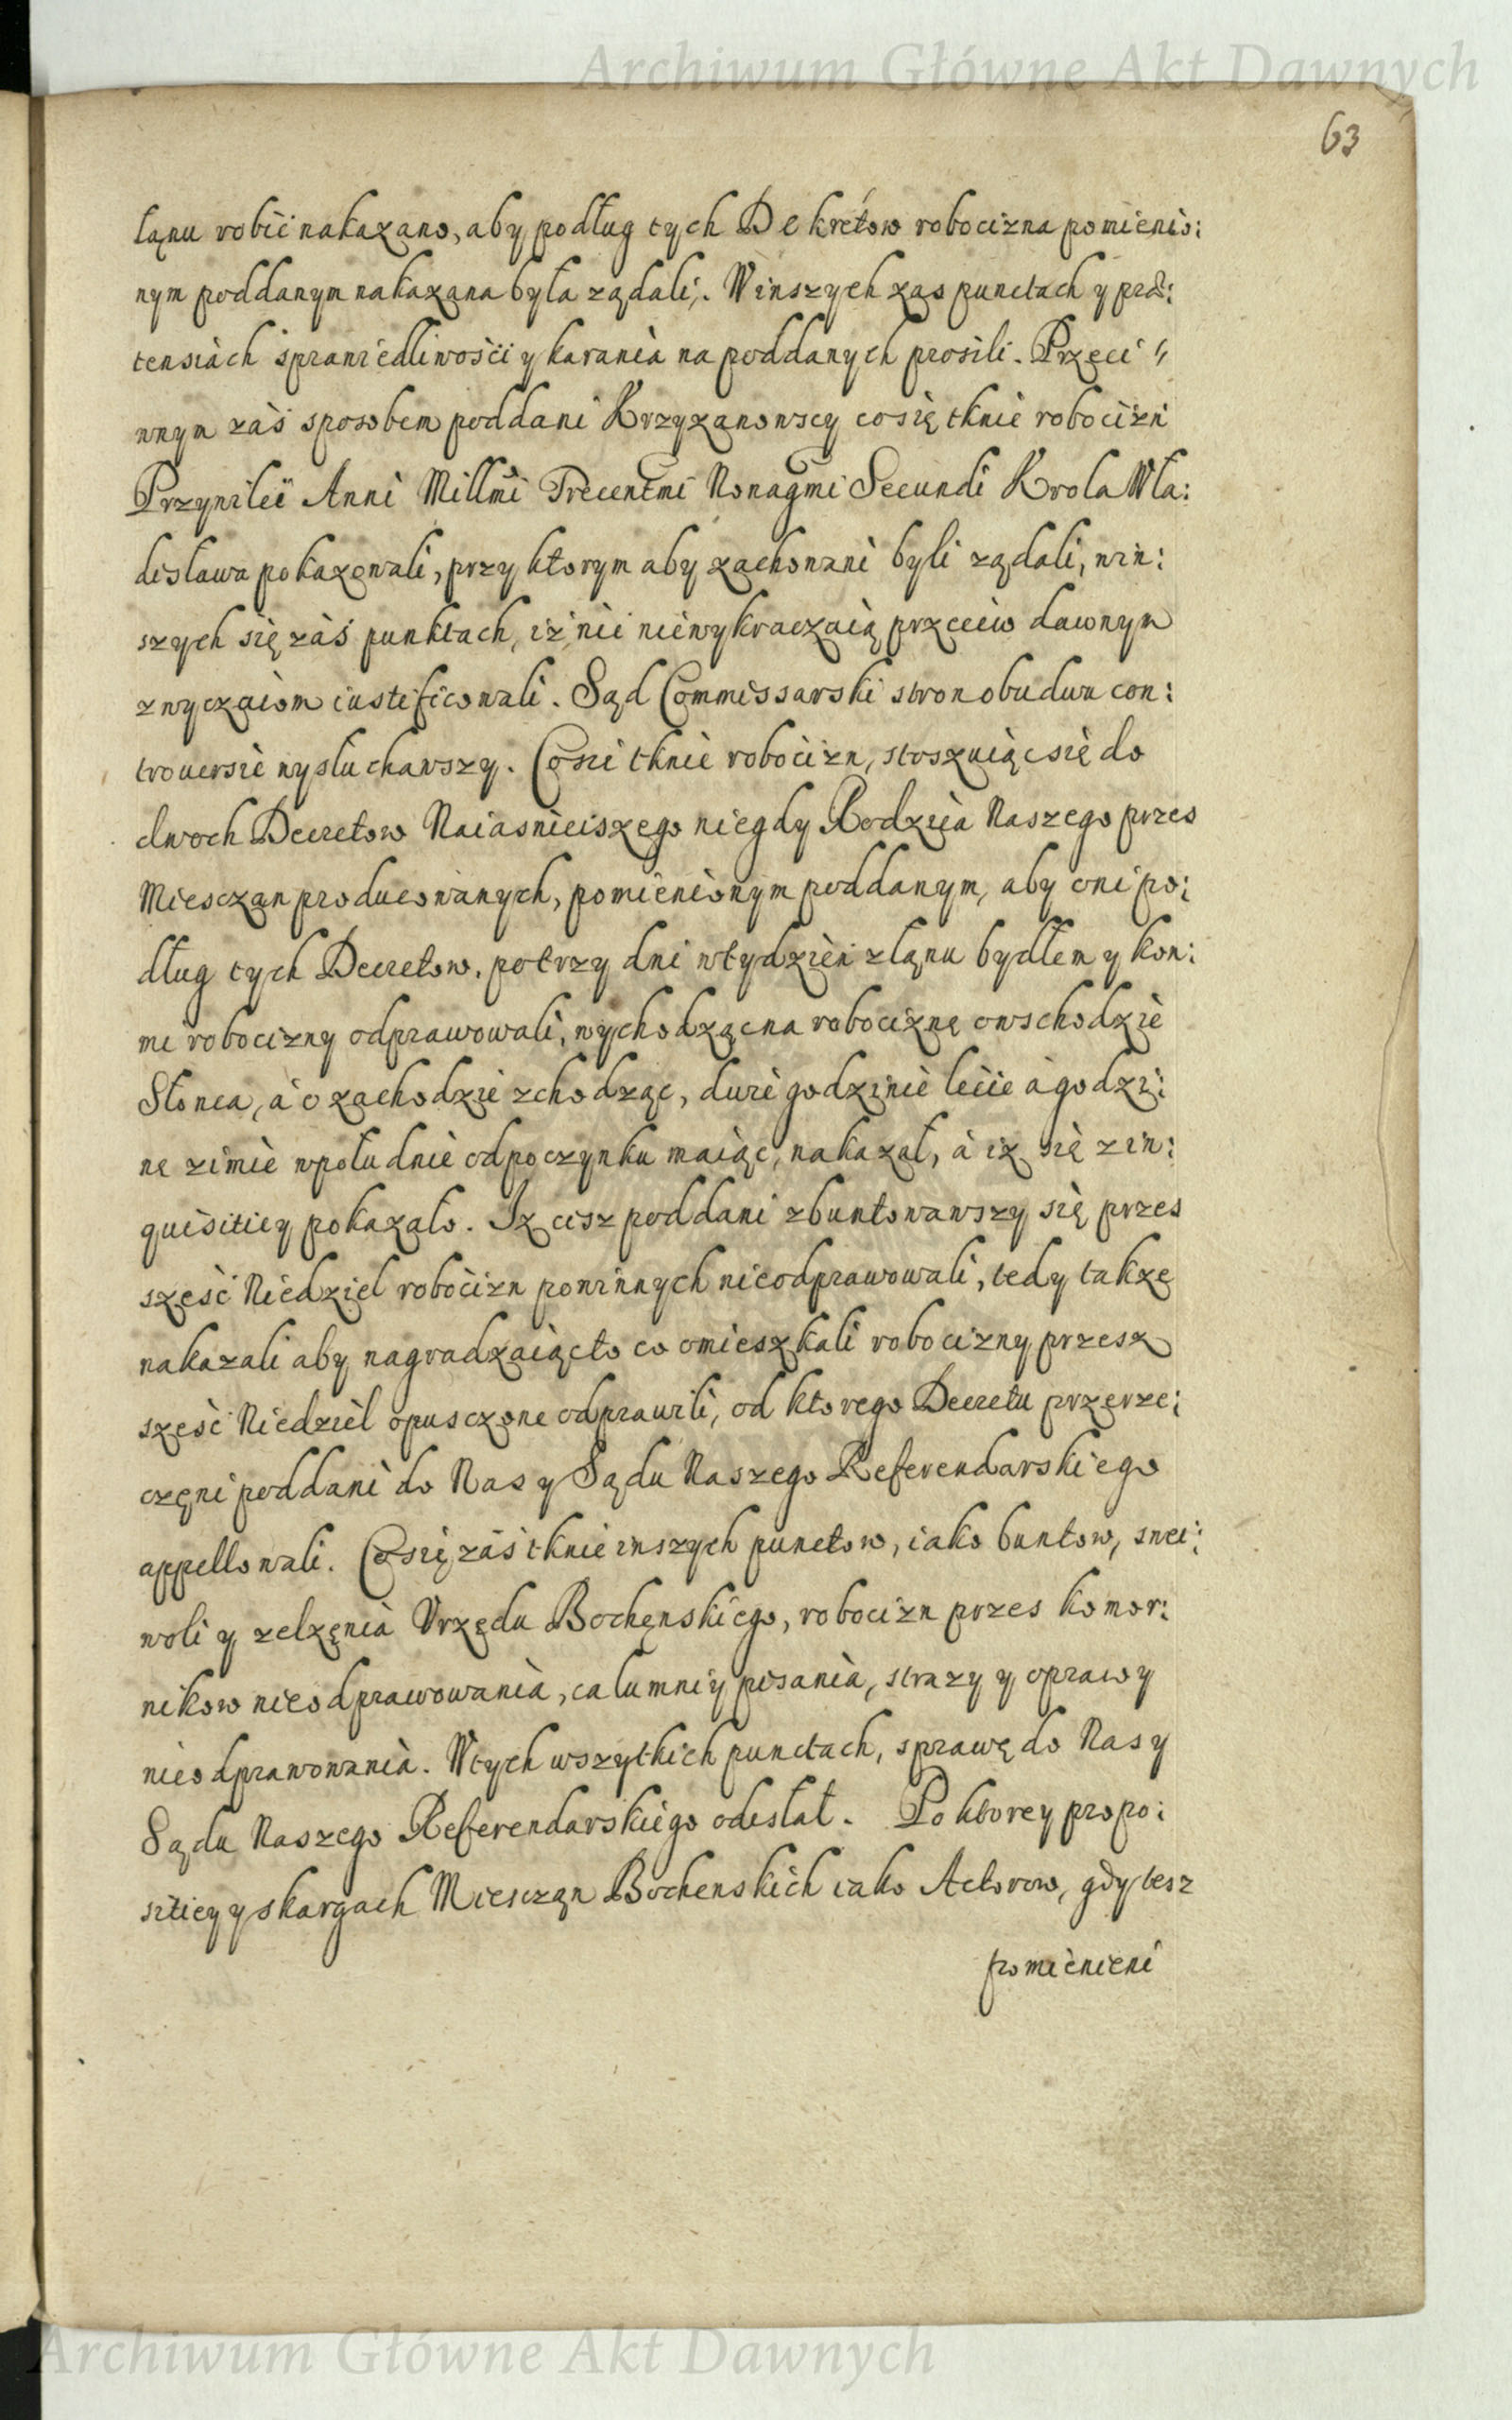 Archiwum Główne Akt Dawnych
63
łąnu robić nakazano, aby podług tych Dekretow robocizna pomienio:
nym poddanym nakazana była ządali. W inszych zas punctach y prae:
tensiach sprawiedliwości y karania na poddanych prosili. Przeci"
wnym zaś sposobem poddani Krzyzanowscy co się tknie robocizn
Przywilei Anni Millmi Trecentmi Nonagmi Secundi Krola Wła:
disława pokazowali, przy ktorym aby zachowani byli ządali, w in:
szych się zaś punktach, iż nic niewykraczaią przeciw dawnym
zwyczaiom iustificowali. Sąd Commissarski stron obudwu con:
trouersie wysłuchawszy. Co sie tknie robocizn, stosuiąc się do
dwoch Decretow Naiasnieiszego niegdy Rodzica Naszego przes
Miesczan producowanych, pomienionym poddanym, aby oni po:
dług tych Decretow, po trzy dni w tydzien z łąnu bydłem y kon:
mi robocizny odprawowali, wychodząc na robociznę o wschodzie
Słonca, a o zachodzie zchodząc, dwie godzinie lecie a godzi:
nę zimie w południe odpoczynku maiąc, nakazał, a iz się z in:
quisitiey pokazało. Iz cisz poddani zbuntowawszy się przes
szesć Niedziel robocizn powinnych nieodprawowali, tedy takze
nakazali aby nagradzaiąc to co omieszkali robocizny przesz
szesć Niedziel opusczone odprawili, od ktorego Decretu przerze:
czeni poddani do Nas y Sądu Naszego Referendarskiego
appellowali. Co się zaś tknie inszych punctow, iako buntow, swei:
woli y zelzenia Vrzędu Bochenskiego, robocizn przes komor:
nikow nieodprawowania, calumniy pisania, strazy y oprawy
nieodprawowania. W tych wszytkich punctach, sprawę do Nas y
Sądu Naszego Referendarskiego odesłał. Po ktorey propo:
sitiey y skargach Miesczan Bochenskich iako Actorow, gdy tesz
pomienieni
Archiwum Główne Akt Dawnych